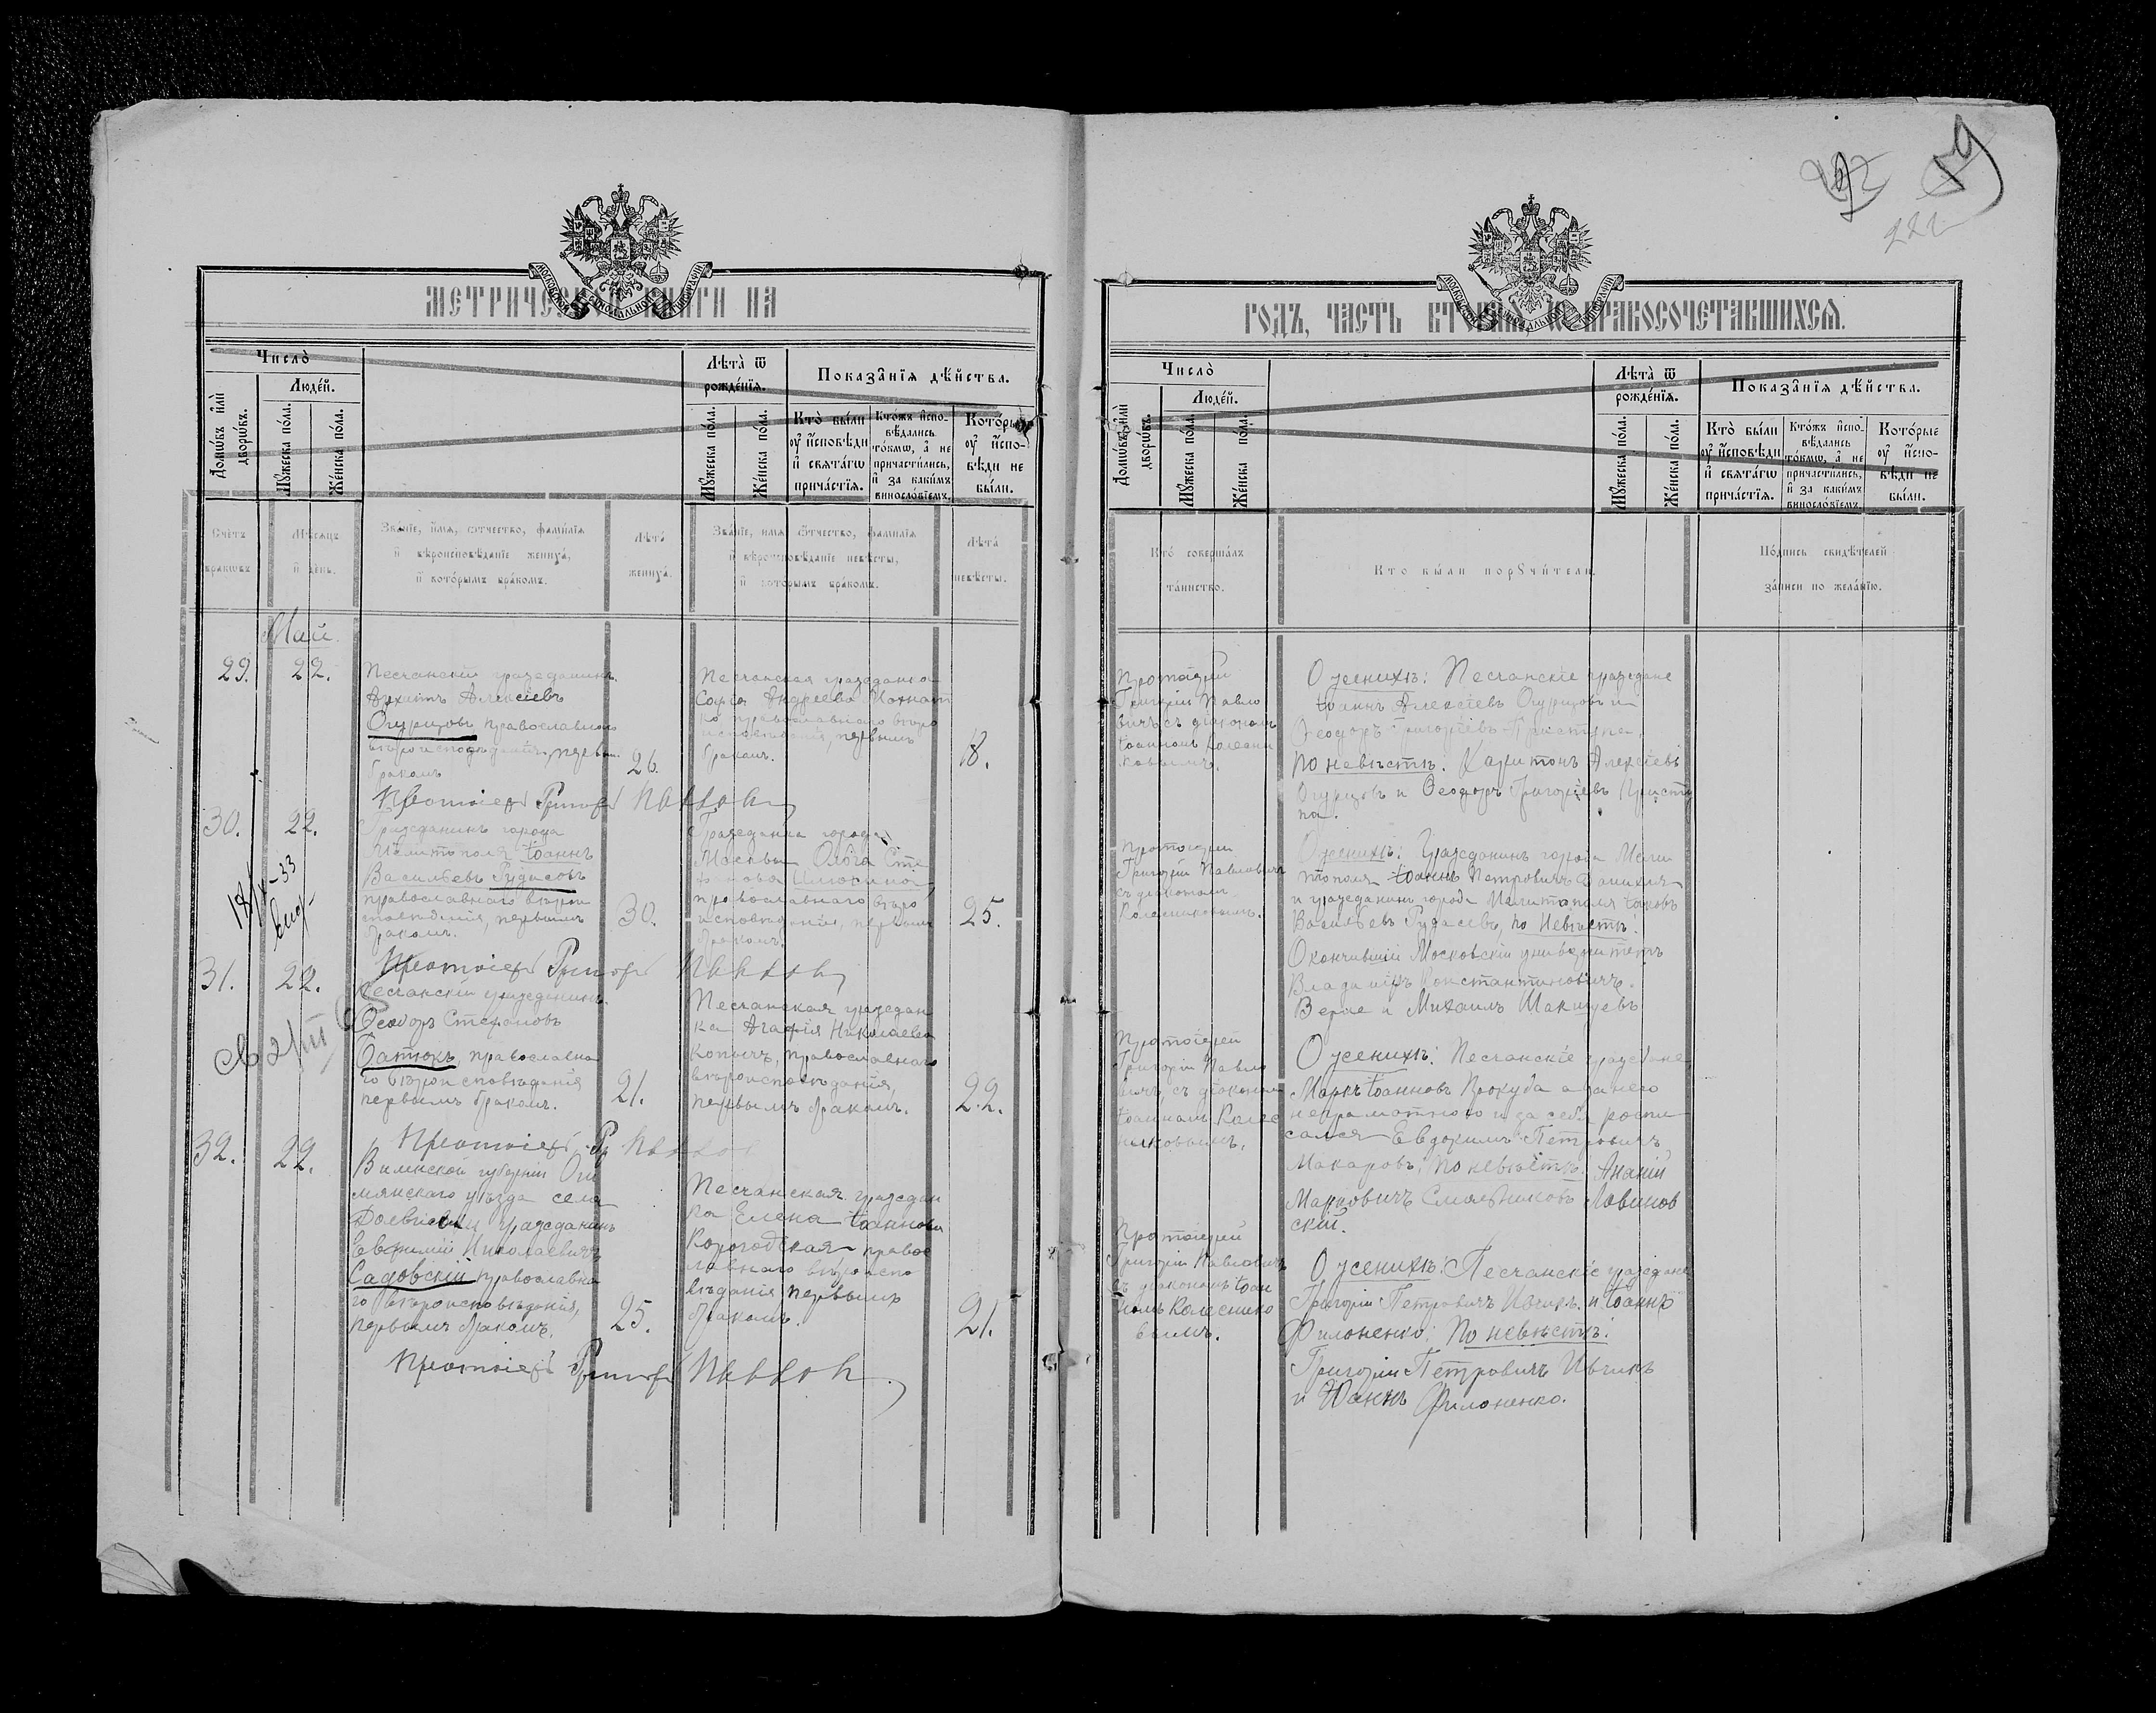 222
МОСКОВСКОЙ СѴНОДАЛЬНОЙ ТИПОГРАФІИ
МОСКОВСКОЙ СѴНОДАЛЬНОЙ ТИПОГРАФІИ
МЕТРИЧЕСКОЙ КНИГИ НА
ГОДЪ, ЧАСТЬ ВТОРАЯ, О БРАКОСОЧЕТАВШИХСЯ.
Число̀
Людéй.
Домѡ́въ и҆лѝ дворѡ́въ.
Мꙋ́жеска по́ла.
Жéнска по́ла.
Лѣ́та ѿ рождéнїѧ.
Мꙋ́жеска по́ла.
Жéнска по́ла.
Показа̑нїѧ дѣ́йства.
Кто̀ бы́ли оу҆ и҆сповѣди и҆ свѧта́гѡ прича́стїѧ.
Кто́жъ и҆спо-вѣ́дались то́кмѡ, а҆ не причасти́лись, и҆ за каки́мъ винослóвїемъ.
Кото́рые оу҆ и҆спо-вѣди не бы́ли.
Счетъ браковъ
Мѣсяцъ и день.
Званіе, имя, отчество, фамилія
и вѣроисповѣданіе жениха,
и которымъ бракомъ.
Лѣта жениха.
Званіе, имя, отчество, фамилія
и вѣроисповѣданіе невѣсты,
и которымъ бракомъ.
Лѣта невѣсты.
Кто совершалъ таинство.
Кто были поручители.
Подпись свидѣтелей
записи по желанію.
Май
29. 22.
Песчанскій гражданинъ
Алексіевъ
Огурцовъ православнаго
вѣроисповѣданія, первым
бракомъ
26.
Песчанская гражданка
Софія Андреева Мохнат
ко православнаго вѣро
исповѣданія, первымъ
бракомъ.
18.
Протоіерей
Григорій Павло
вичъ съ діакономъ
Іоанномъ Колесни
ковымъ.
О женихѣ: Песчанскіе граждане
Іоаннъ Алексіевъ Огурцовъ и
Ѳеодоръ Григоріевъ Приступа,
по невѣстѣ: Харитонъ Алексіевъ
Огурцовъ и Ѳеодоръ Григоріевъ Присту
па.
Протоіерей Григорій Павлович
30. 22.
Гражданинъ города
Мелитополя Іоаннъ
Васильевъ Рудасевъ
православнаго вѣрои
сповѣданія, первымъ
бракомъ.
30.
Гражданка города
Москвы Ольга Сте
православнаго вѣро
исповѣданія, первымъ
бракомъ.
25.
Протоіерей
Григорій Павловичъ
съ діакономъ
Колесниковымъ.
О женихѣ: Гражданинъ города Мели
тополя Іоаннъ Петровичъ
и гражданинъ города Мелитополя Іаковъ
Васильевъ Рудасевъ, по невѣстѣ:
Окончившій Московскій университетъ
Владиміръ Константиновичъ
и Михаилъ
Протоіерей Григорій Павлович
31. 22.
Песчанскій гражданинъ
Ѳеодоръ Стефановъ
Батюкъ, православна
го вѣроисповѣданія
первымъ бракомъ.
21.
Песчанская граждан
ка Агафія Николаева
Копычъ, православнаго
вѣроисповѣданія,
первымъ бракомъ.
22.
Протоіерей
Григорій Павло
вичъ, съ діакономъ
Іоанномъ Колес
никовымъ.
О женихѣ: Песчанскіе граждане
Маркъ Іоанновъ Прокуда а за него
неграмотного и за себя роспи
сался Евдокимъ Петровичъ
Макаровъ; по невѣстѣ: Ананій
Марковичъ Смальниковъ
скій.
Протоіерей Гр Павлов
32. 22.
Виленской губерніи Ош
мянскаго уѣзда села
гражданинъ
Евфимій Николаевичъ
Садовскій православна
го вѣроисповѣданія,
первымъ бракомъ.
25.
Песчанская граждан
ка Елена Іоаннова
Корогодская право
славнаго вѣроиспо
вѣданія первымъ
бракомъ.
21.
Протоіерей
Григорій Павловичъ
съ діакономъ Іоан
номъ Колеснико
вымъ.
О женихѣ: Песчанскіе граждане
Григорій Петровичъ Ивчикъ и Іоаннъ
Филоненко; По невѣстѣ:
Григорій Петровичъ Ивчикъ
и Іоаннъ Филоненко.
Протоіерей Григорій Павлович